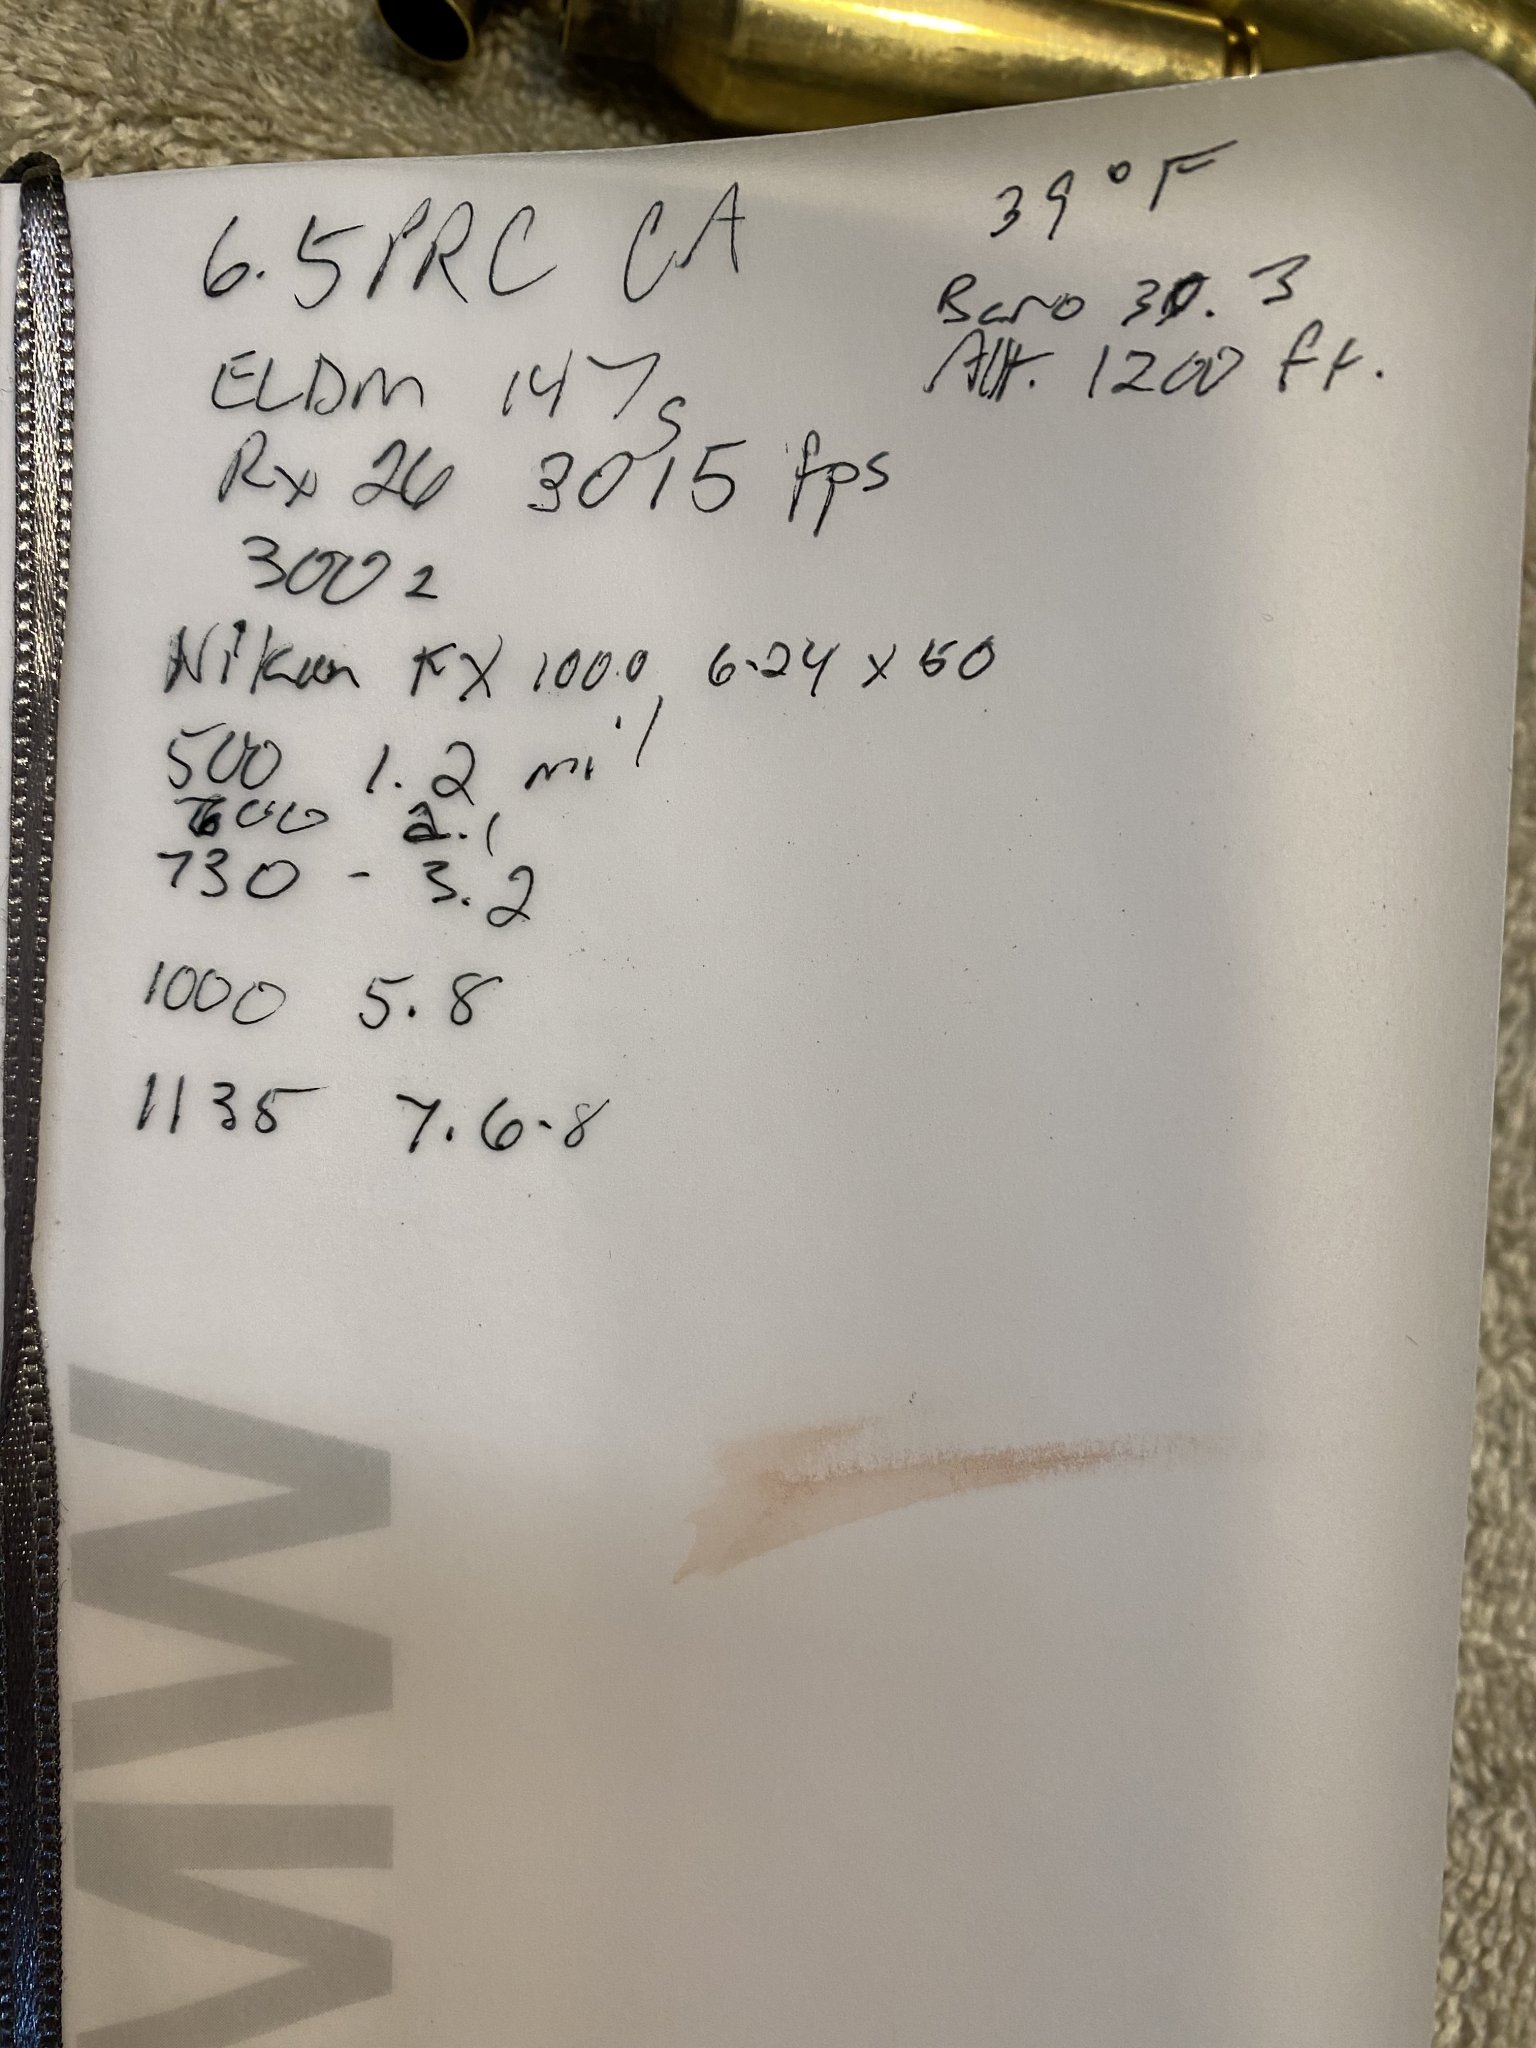 6.5 PRC CA
39°F
Baro 30.3
Alt. 1200 ft.
ELDM 147g
Rx 26 3015 fps
300 z
Nikon FX 1000 6-24 x 50
500 1.2 mil
600 2.1
730 - 3.2
1000 5.8
1135 7.6-8